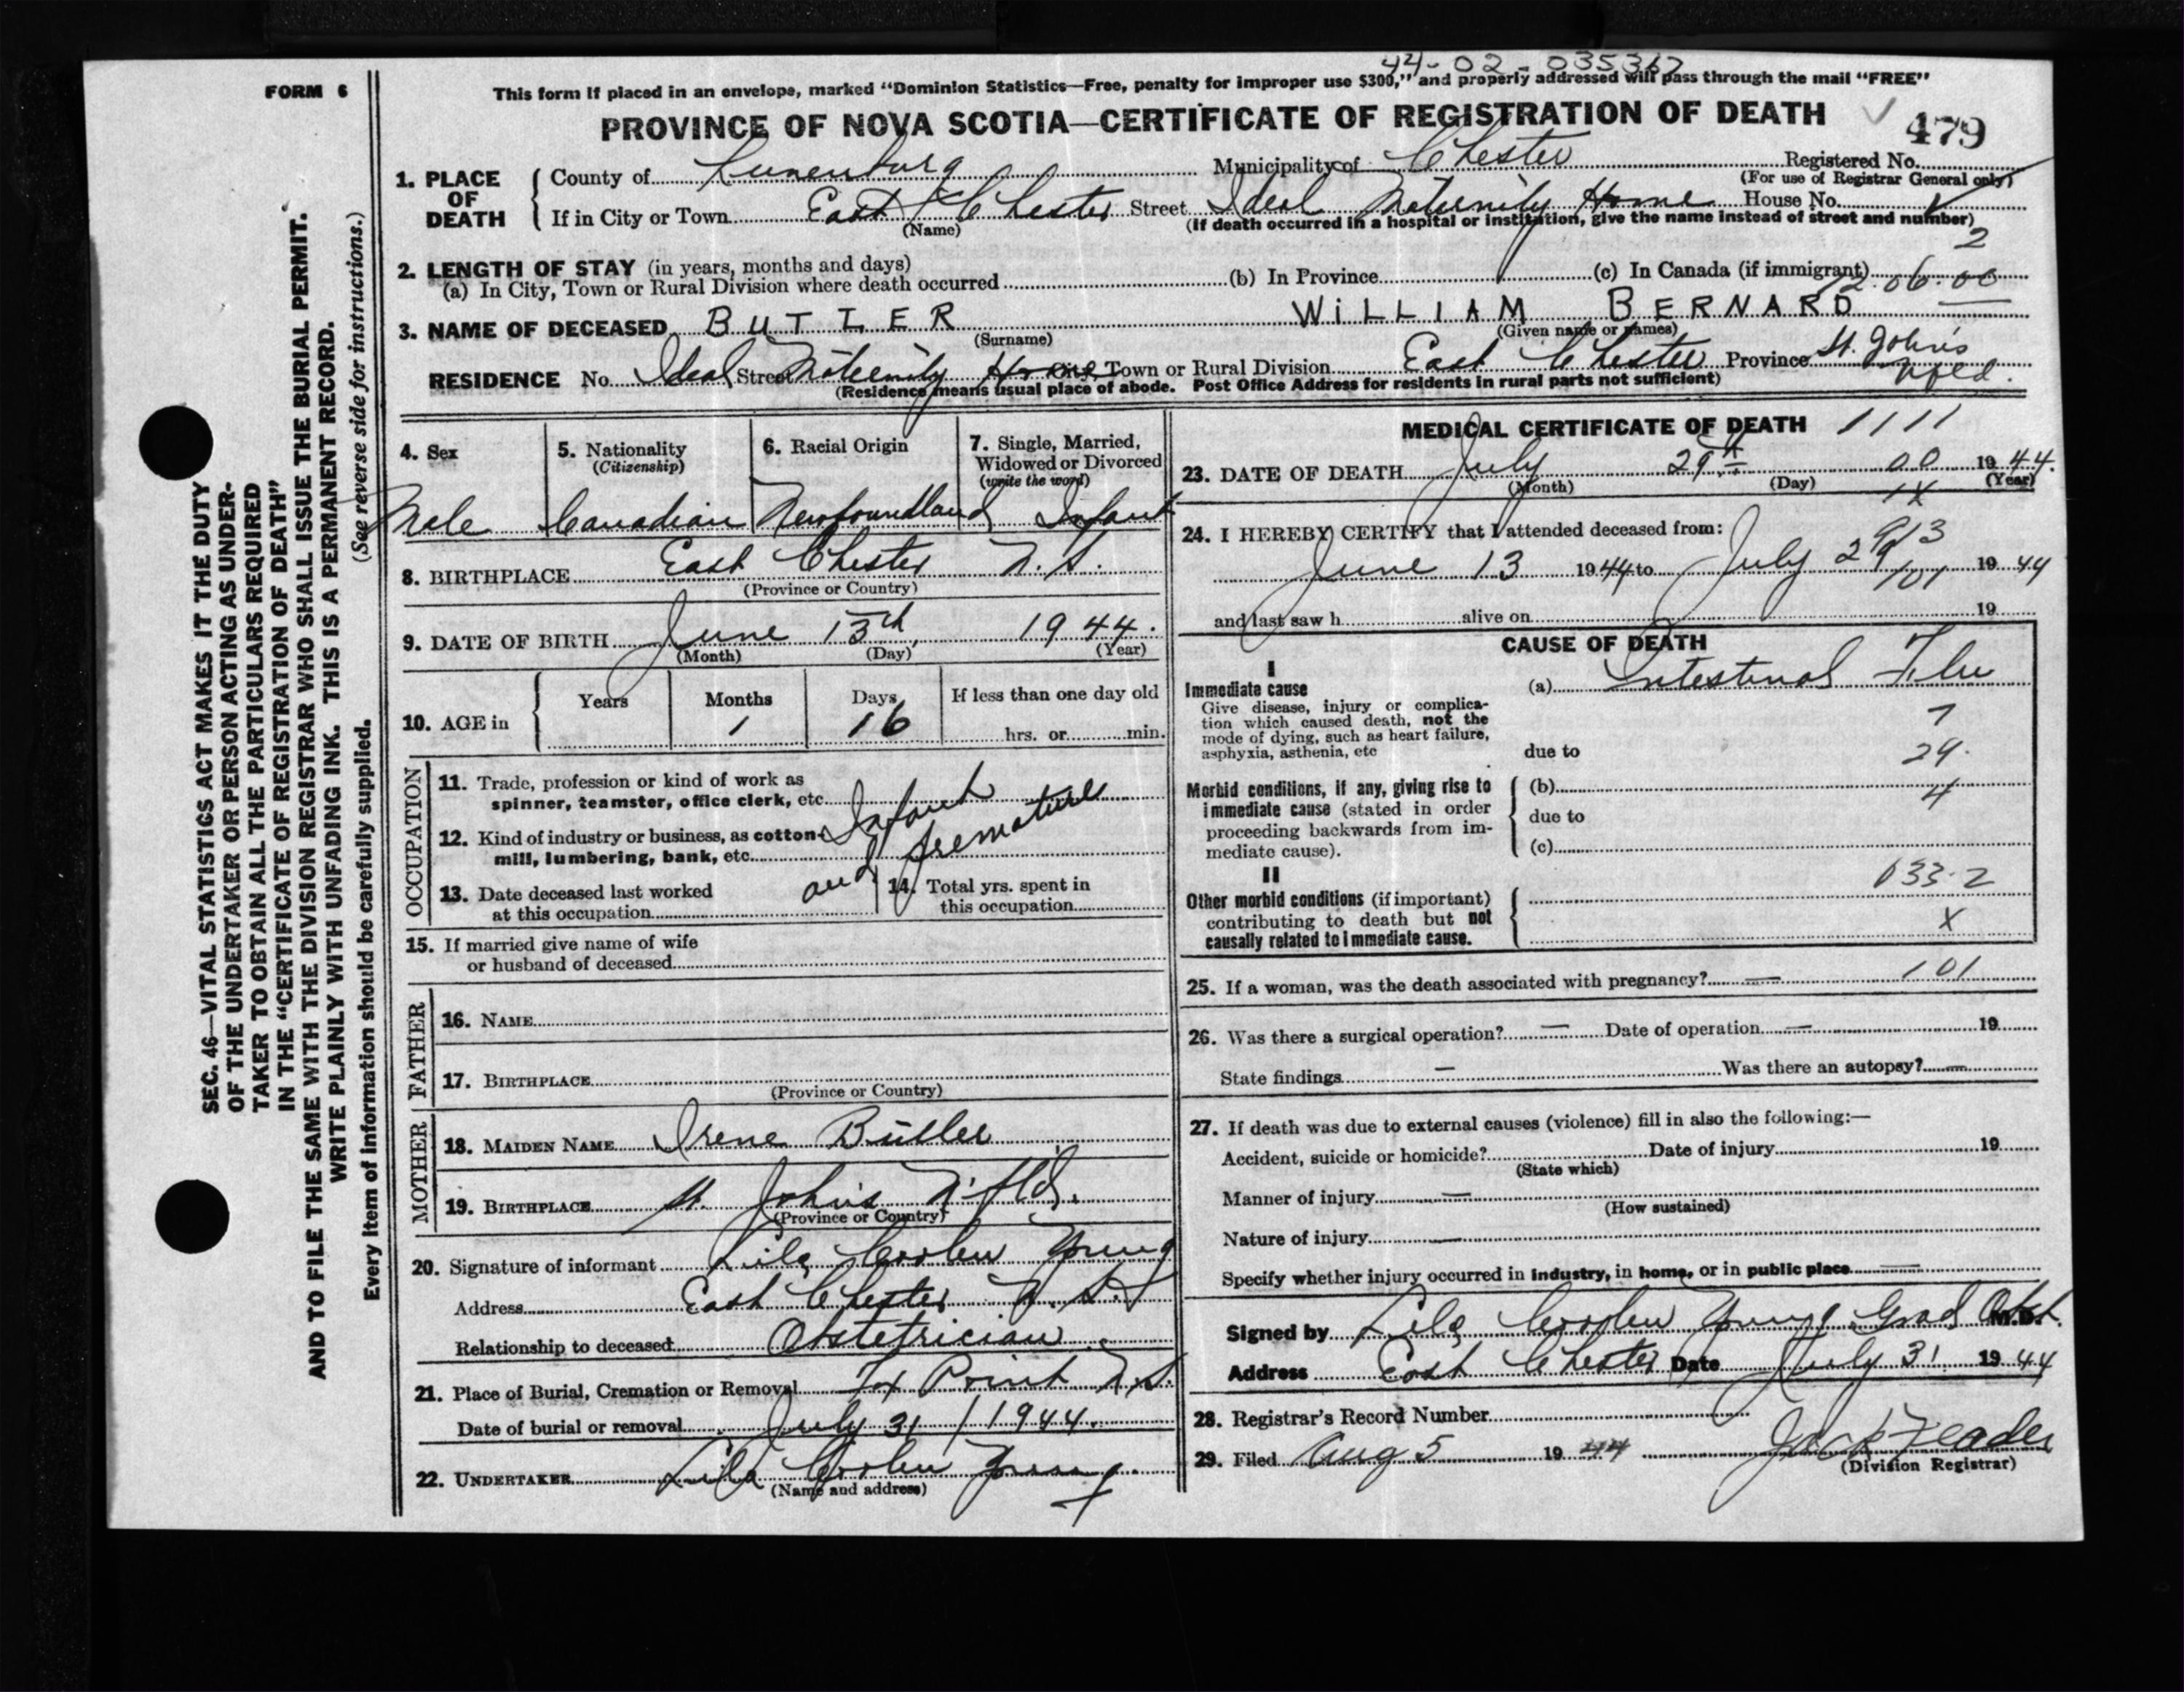 44-02-035367
FORM 6
This form if placed in an envelope, marked "Dominion Statistics—Free, penalty for improper use $300," and properly addressed will pass through the mail "FREE"
PROVINCE OF NOVA SCOTIA—CERTIFICATE OF REGISTRATION OF DEATH
479
1. PLACE OF DEATH
County of Lunenburg Municipality of Chester Registered No.
(For use of Registrar General only)
If in City or Town East Chester Street Ideal Maternity Home House No.
(Name) (If death occurred in a hospital or institution, give the name instead of street and number)
2
2. LENGTH OF STAY (in years, months and days)
(a) In City, Town or Rural Division where death occurred (b) In Province (c) In Canada (if immigrant)
12.06.00
3. NAME OF DECEASED BUTLER WILLIAM BERNARD
(Surname) (Given name or names)
RESIDENCE No. Ideal Street Maternity Home City, Town or Rural Division East Chester Province St. John's
Nfld.
(Residence means usual place of abode. Post Office Address for residents in rural parts not sufficient)
4. Sex
Male
5. Nationality
(Citizenship)
Canadian
6. Racial Origin
Newfoundland
7. Single, Married,
Widowed or Divorced
(write the word)
Infant
8. BIRTHPLACE East Chester N.S.
(Province or Country)
9. DATE OF BIRTH June 13th, 1944.
(Month) (Day) (Year)
10. AGE in
Years Months Days If less than one day old
1 16
hrs. or min.
OCCUPATION
11. Trade, profession or kind of work as
spinner, teamster, office clerk, etc. Infant
12. Kind of industry or business, as cotton-
mill, lumbering, bank, etc.
and Premature
13. Date deceased last worked
at this occupation
14. Total yrs. spent in
this occupation
15. If married give name of wife
or husband of deceased
FATHER
16. NAME
17. BIRTHPLACE
(Province or Country)
MOTHER
18. MAIDEN NAME Irene Butler
19. BIRTHPLACE St. John's N'fld.
(Province or Country)
20. Signature of informant Lila Coolen Young
Address East Chester N.S.
Relationship to deceased Obstetrician
21. Place of Burial, Cremation or Removal Fox Point N.S.
Date of burial or removal July 31 / 1944.
22. UNDERTAKER Lila Coolen Young
(Name and address)
MEDICAL CERTIFICATE OF DEATH 1111
23. DATE OF DEATH July 29th 00 1944.
(Month) (Day) (Year)
1X
24. I HEREBY CERTIFY that I attended deceased from:
913
June 13 1944 to July 29 1944
101
and last saw h alive on 19
CAUSE OF DEATH
I
Immediate cause
Give disease, injury or complica-
tion which caused death, not the
mode of dying, such as heart failure,
asphyxia, asthenia, etc
(a) Intestinal Flu
7
due to
29.
Morbid conditions, if any, giving rise to
immediate cause (stated in order
proceeding backwards from im-
mediate cause).
(b)
4
due to
(c)
II
Other morbid conditions (if important)
contributing to death but not
causally related to immediate cause.
033-2
X
25. If a woman, was the death associated with pregnancy? — 101
26. Was there a surgical operation? — Date of operation — 19
State findings — Was there an autopsy? —
27. If death was due to external causes (violence) fill in also the following:—
Accident, suicide or homicide? Date of injury 19
(State which)
Manner of injury —
(How sustained)
Nature of injury —
Specify whether injury occurred in industry, in home, or in public place —
Signed by Lila Coolen Young Grad Obst. M.D.
Address East Chester Date July 31 1944
28. Registrar's Record Number
29. Filed Aug 5 1944
(Division Registrar)
SEC. 46—VITAL STATISTICS ACT MAKES IT THE DUTY
OF THE UNDERTAKER OR PERSON ACTING AS UNDER-
TAKER TO OBTAIN ALL THE PARTICULARS REQUIRED
IN THE "CERTIFICATE OF REGISTRATION OF DEATH"
AND TO FILE THE SAME WITH THE DIVISION REGISTRAR WHO SHALL ISSUE THE BURIAL PERMIT.
WRITE PLAINLY WITH UNFADING INK. THIS IS A PERMANENT RECORD.
(See reverse side for instructions.)
Every item of information should be carefully supplied.